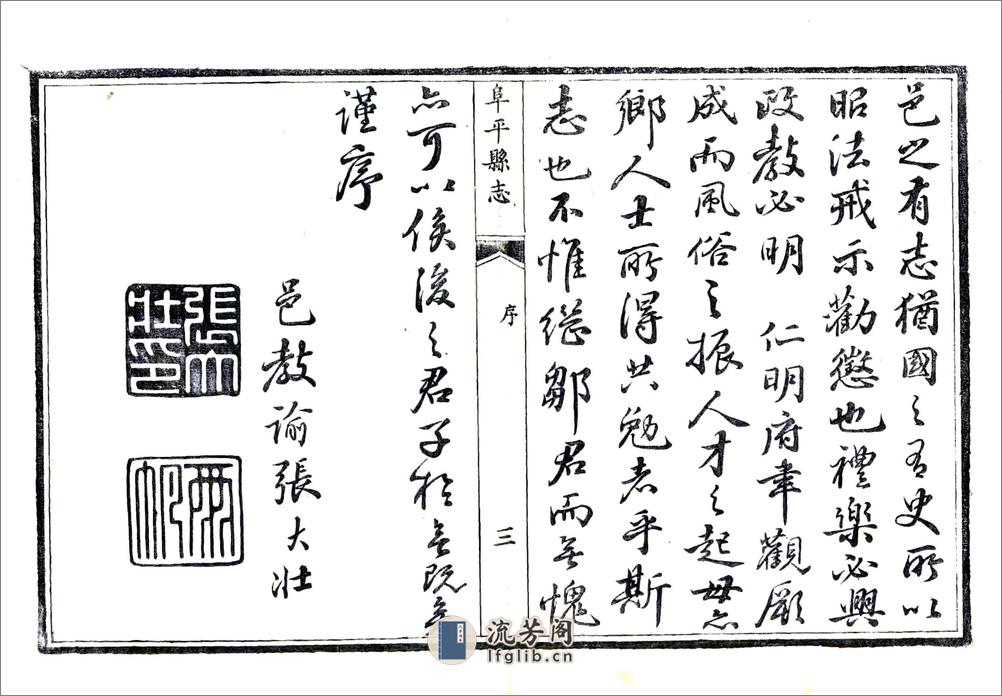 邑之有志猶國之有史所以
昭法戒示勸懲也禮樂必興
政教必明 仁明府聿觀厥
成而風俗之振人才之起毋亦
鄉人士所得共勉者乎斯
志也不惟繼鄒君而無愧
阜平縣志 序 三
亦可以俟後之君子於無既矣
謹序
邑教諭張大壯
張大壯印
流芳阁
lfglib.cn